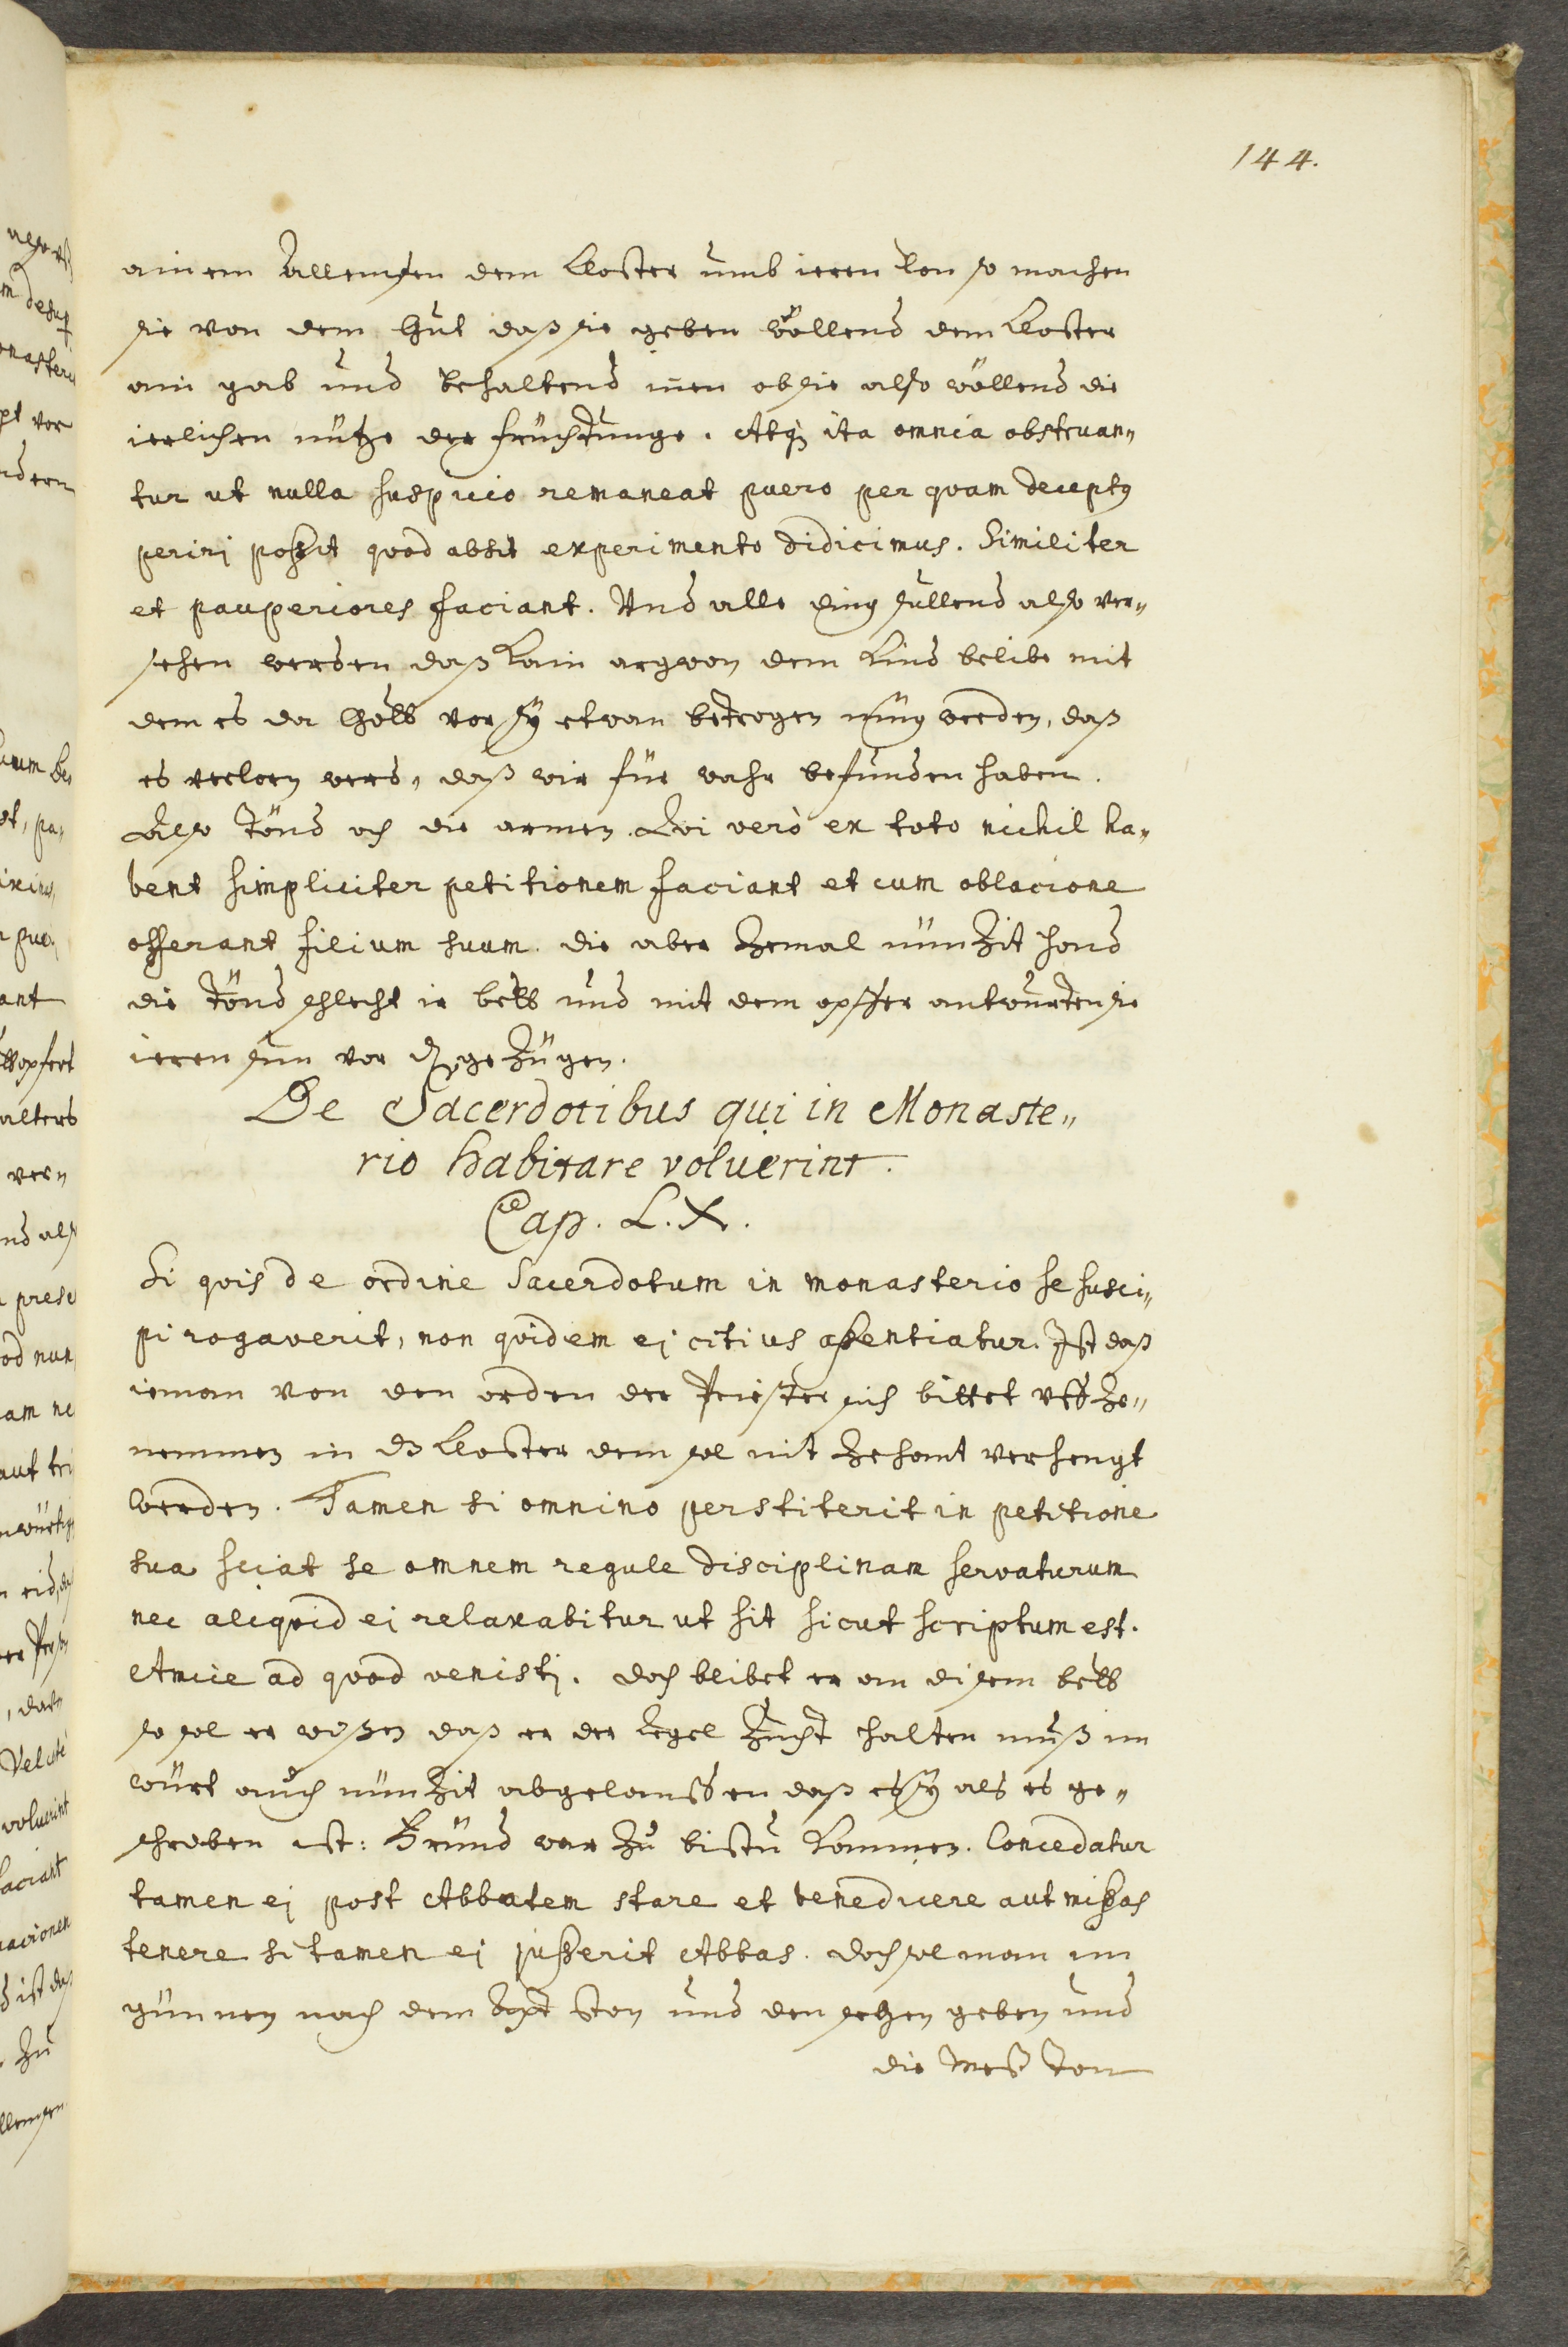 144.
ainem Allemsen dem Closter umb ieren lon so machen
sie von dem Gut daß sie geben wöllend dem Closter
ain gab und behaltend inen ob sie also wöllend die
ierlichen nütze der früchtunge. Atq3 ita omnia obstruan„
tur ut nulla suspicio remaneat puero per quam deceptꝯ
perirj poßit quod absit experimento didicimus. Similiter
et pauperiores faciant. Und alle ding sullend also ver„
sehen werden daß kain argwon dem kind belibe mit
dem es da Gott vor sÿ etwan betrogen müg werden, daß
es verlorn werd, daß wir für wahr befunden haben.
Also tönd och die armen. Qui verò ex toto nichil ha„
bent simpliciter petitionem faciant et cum oblacione
offerant filium suum. die aber zemal nünzit hand
die tönd schlecht ir bett und mit dem opffer antwurten sie
ieren sun vor gezügen.
De Sacerdotibus qui in Monaste„
rio habitare voluerint.
Cap. L.X.
Si quis de ordine Sacerdotum in monasterio se susci„
pi rogaverit, non quidem ej citius aßentiatur. Ist daß
ieman von den orden der Priester sich bittet uff ze„
nemmen in dz Closter dem sol nit zehant verhengt
werden. Tamen si omnino perstiterit in petitione
sua sciat se omnem regule disciplinam servaturum
nec aliquid ei relaxabitur ut sit sicut scriptum est.
Amice ad quod venistj. doch blibet er an disem bett
so sol er wißen daß er der Regel zucht halten muß im
würt auch nünzit abgelanssen daß es sÿ als es ge„
schreben ist: Fründ war zu bistu kommen. Concedatur
tamen ej post Abbatem stare et benedicere aut mißas
tenere si tamen ej jußerit Abbas. doch sol man im
günnen nach dem Apt ston und den segen geben und
die Meß ton